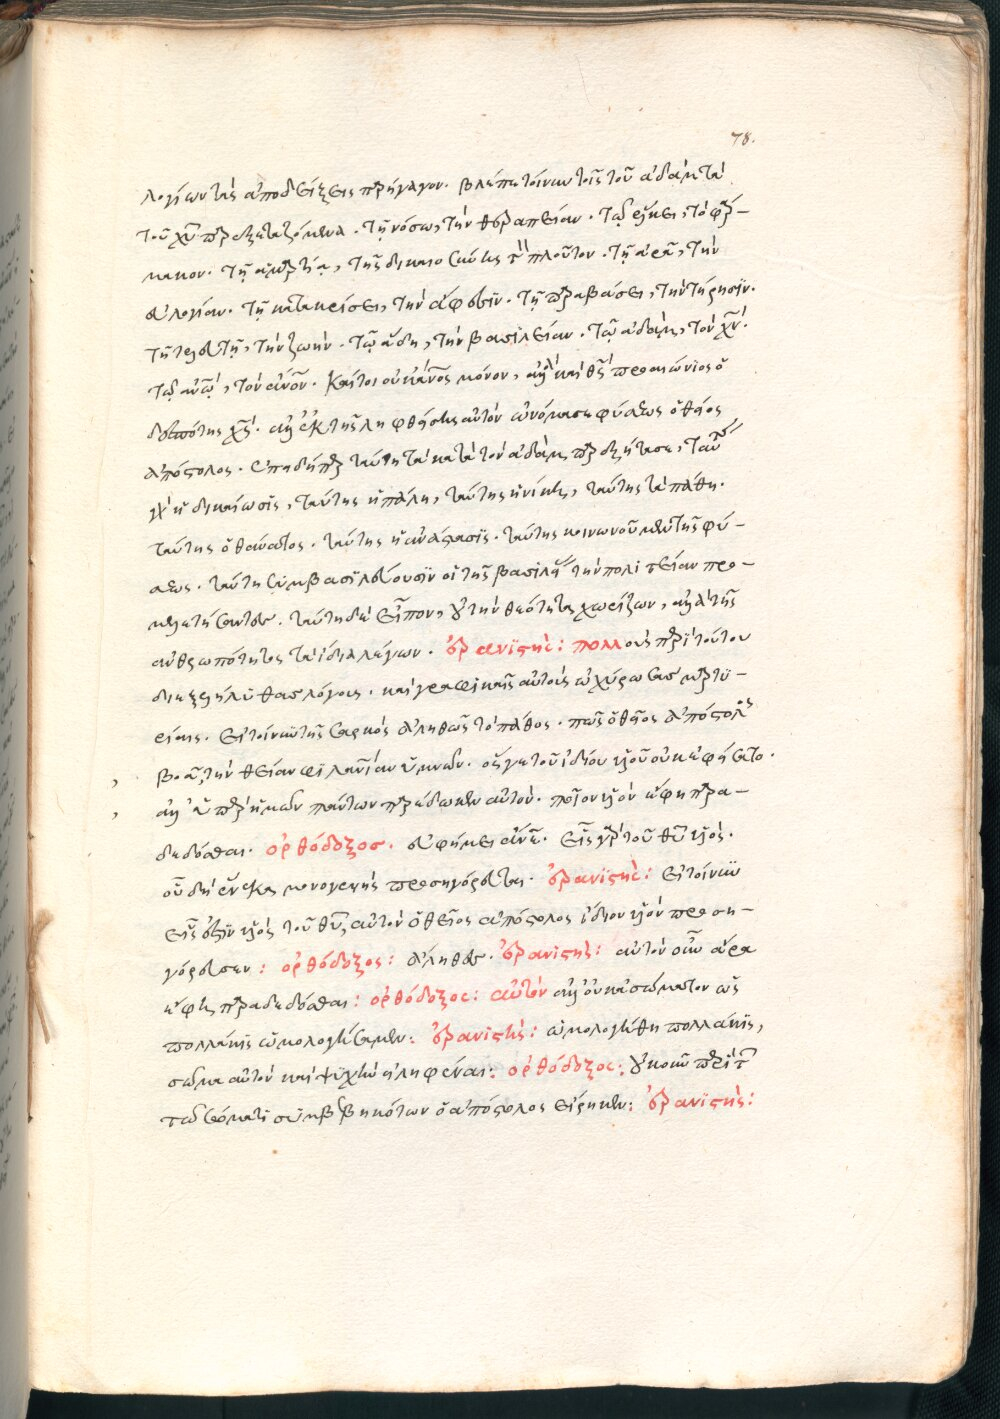 78.
λογίων τὰς ἀποδείξεις παρήγαγον. βλέπε τοίνυν τοῖς τοῦ ἀδὰμ τὰ
τοῦ χυ παρεξεταζόμενα. τῇ νόσω, τὴν θεραπείαν. τῷ ἕλκει, τὸ φάρ-
μακον. τῇ ἁμαρτία, τῆς δικαιοσύνης τὸν πλοῦτον. τῇ ἀρᾶ, τὴν
εὐλογίαν. τῇ κατακρίσει, τὴν ἄφεσιν. τῇ παραβάσει, τὴν τήρησιν.
τῇ τελευτῇ, τὴν ζωήν. τῷ ἅδη, τὴν βασιλείαν. τῷ ἀδὰμ, τὸν χν.
τῷ ανω, τὸν ανον. καίτοι οὐκ ανος μόνον, ἀλλὰ καὶ θς προαιώνιος ὁ
δεσπότης χς. ἀλλ' ἐκ τῆς ληφθείσης αὐτὸν ὠνόμασε φύσεως ὁ θεῖος
ἀπόστολος. ἐπειδήπερ ταύτη τὰ κατὰ τὸν ἀδὰμ παρεξήτασε, ταύτης
γὰρ ἡ δικαίωσις, ταύτης ἡ πάλη, ταύτης ἡ νίκη, ταύτης τὰ πάθη.
ταύτης ὁ θάνατος. ταύτης ἡ ἀνάστασις. ταύτης κοινωνοῦμεν τῆς φύ-
σεως. ταύτη συμβασιλεύουσιν οἱ τῆς βασιλείας τὴν πολιτείαν προ-
μελετήσαντες. ταύτη δὲ εἶπον, οὐ τὴν θεότητα χωρίζων, ἀλλὰ τῆς
ἀνθρωπότητος τὰ ἴδια λέγων. ἐρανιστής: πολλοὺς περὶ τούτου
διεξεληλύθασ λόγους. καὶ γραφικαῖς αὐτοὺς ὠχύρωσασ μαρτυ-
ρίαις. εἰ τοίνυν τῆς σαρκὸς ἀληθῶς τὸ πάθος. πῶς ὁ θεῖος ἀπόστολος
βοᾶ, τὴν θείαν φιλανίαν ὑμνῶν. ὅς γε τοῦ ἰδίου υἱοῦ οὐκ ἐφείσατο.
ἀλλ' ὑπὲρ ἡμῶν πάντων παρέδωκεν αὐτόν. ποῖον υἱὸν ἔφη παρα-
δεδόσθαι. ὀρθόδοξος. εὐφήμει ανε. εἷς γὰρ τοῦ θυ υἱός.
οὗ δὴ ἕνεκα μονογενὴς προσηγόρευται. ἐρανιστής: εἰ τοίνυν
εἷς ἐστὶν υἱὸς τοῦ θυ, αὐτὸν ὁ θεῖος ἀπόστολος ἴδιον υἱὸν προση-
γόρευσεν: ὀρθόδοξος: ἀληθῶς. ἐρανιστής: αὐτὸν οὖν ἄρα
ἔφη παραδεδόσθαι: ὀρθόδοξος: αὐτὸν ἀλλ' οὐκ ἀσώματον ὡς
πολλάκις ὡμολογήσαμεν: ἐρανιστής: ὡμολογήθη πολλάκις,
σῶμα αὐτὸν καὶ ψυχὴν εἰληφέναι: ὀρθόδοξος: οὐκοῦν περὶ τῶν
τῷ σώματι συμβεβηκότων ὁ ἀπόστολος εἴρηκεν: ἐρανιστής: